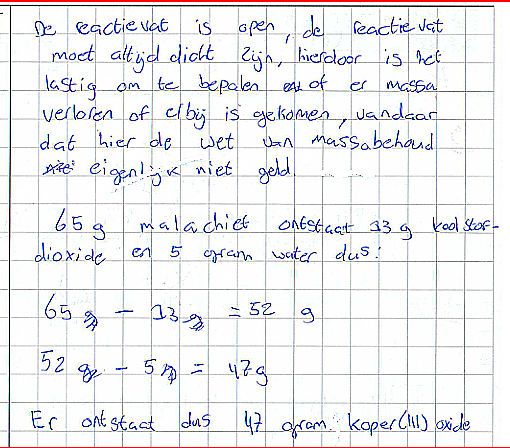 De reactievat is open, de reactievat
moet altijd dicht zijn, hierdoor is het
lastig om te bepalen of er massa
verloren of erbij is gekomen, vandaar
dat hier de wet van massabehoud
eigenlijk niet geld.
65 g malachiet ontstaat 13 g koolstof-
dioxide en 5 gram water dus:
65 g - 13 g = 52 g
52 g - 5 g = 47g
Er ontstaat dus 47 gram koper(III) oxide